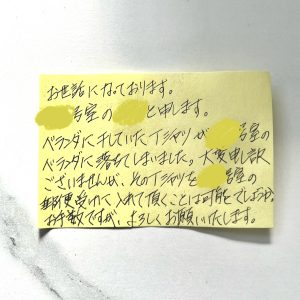 お世話になっております。
号室の と申します。
ベランダに干していたTシャツが 号室の
ベランダに落ちてしまいました。大変申し訳
ございませんが、そのTシャツを 号室の
郵便受けに入れて頂くことは可能でしょうか。
お手数ですが、よろしくお願いいたします。